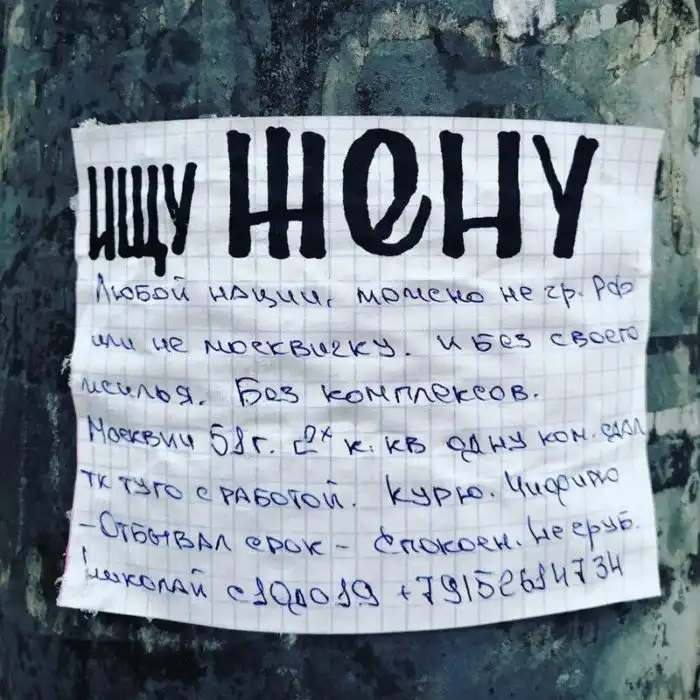 ИЩУ ЖЕНУ
Любой нации, можно не гр. РФ
или не москвичку. и без своего
жилья. Без комплексов.
Москвич 51г. 2х к. кв одну ком. сдал
тк туго с работой. Курю. Чифирю
-Отбывал срок- спокоен. Не груб.
Николай с 10 до 19 +79152614734